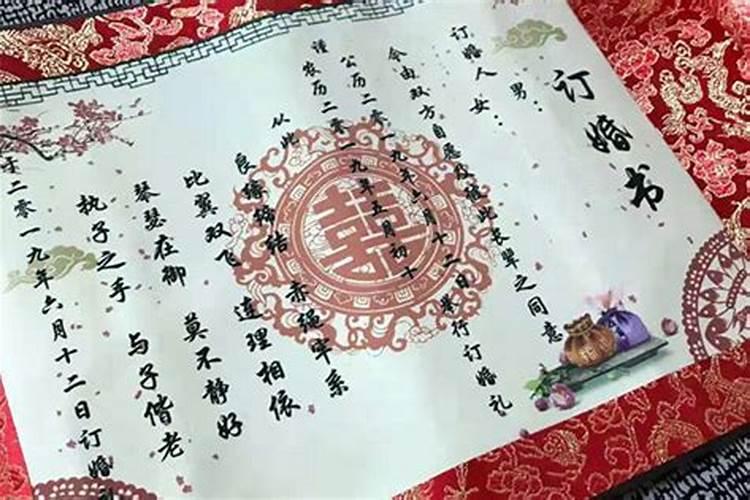 订婚书
订婚人 男:
女:
今由双方自愿及彼此长辈之同意
公历二零一九年六月十二日举行订婚礼
谨 农历二零一九年五月初十
从此
良缘缔结 赤绳牢系
比翼双飞 连理相依
琴瑟在御 莫不静好
执子之手 与子偕老
于二零一九年六月十二日订婚